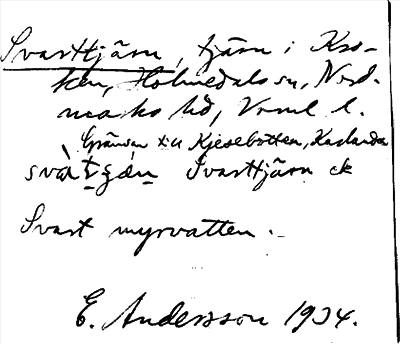 Svarttjärn, tjärn i Kro-
ken, Holmedals sn, Nord-
marks hd, Vrml l.
Gränsar till Kjesebotten, Kaslanda
Svarttjärn ck
Svart myrvatten.
E. Andersson 1934.